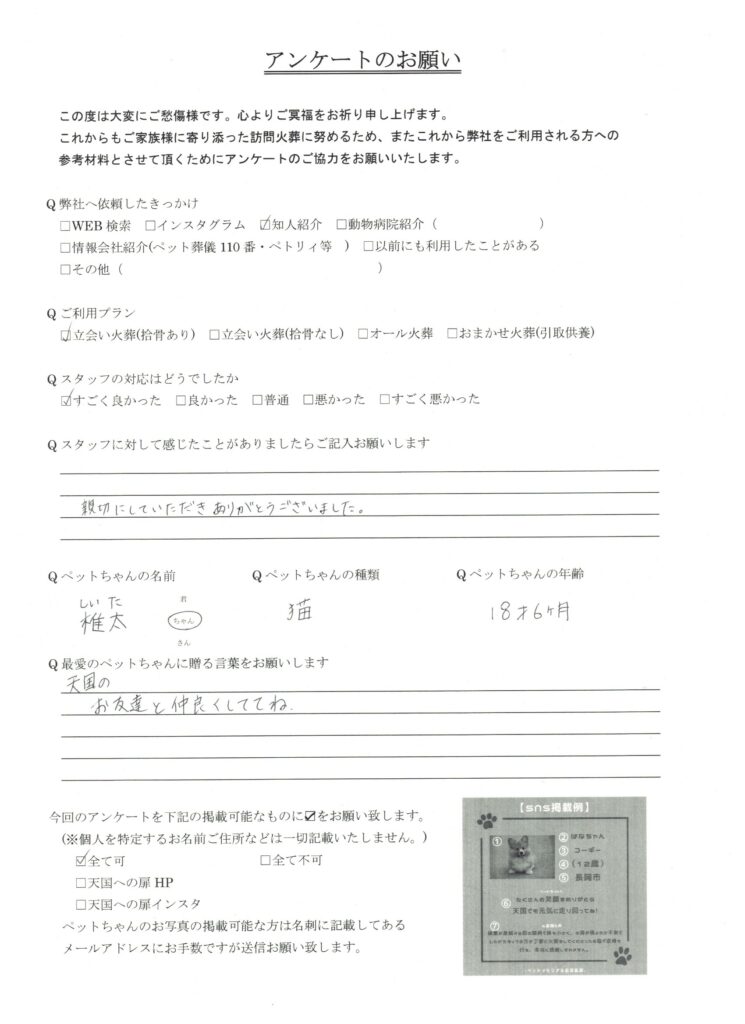 アンケートのお願い
この度は大変にご愁傷様です。心よりご冥福をお祈り申し上げます。
これからもご家族様に寄り添った訪問火葬に努めるため、またこれから弊社をご利用される方への
参考材料とさせて頂くためにアンケートのご協力をお願いいたします。
Q 弊社へ依頼したきっかけ
□WEB 検索 □インスタグラム ☑知人紹介 □動物病院紹介（ ）
□情報会社紹介(ペット葬儀 110 番・ペトリィ等 ) □以前にも利用したことがある
□その他（ ）
Q ご利用プラン
☑立会い火葬(拾骨あり) □立会い火葬(拾骨なし) □オール火葬 □おまかせ火葬(引取供養)
Q スタッフの対応はどうでしたか
☑すごく良かった □良かった □普通 □悪かった □すごく悪かった
Q スタッフに対して感じたことがありましたらご記入お願いします
親切にしていただきありがとうございました。
Q ペットちゃんの名前 Q ペットちゃんの種類 Q ペットちゃんの年齢
しいた 君
椎太 ちゃん 猫 18才6ヶ月
さん
Q 最愛のペットちゃんに贈る言葉をお願いします
天国の
お友達と仲良くしててね.
今回のアンケートを下記の掲載可能なものに☑をお願い致します。
(※個人を特定するお名前ご住所などは一切記載いたしません。)
☑全て可 □全て不可
□天国への扉 HP
□天国への扉インスタ
ペットちゃんのお写真の掲載可能な方は名刺に記載してある
メールアドレスにお手数ですが送信お願い致します。
【sns掲載例】
① ② はなちゃん
③ コーギー
④ (12歳)
⑤ 長岡市
⑥ たくさんの笑顔をありがとう
天国でも元気に走り回ってね!
⑦